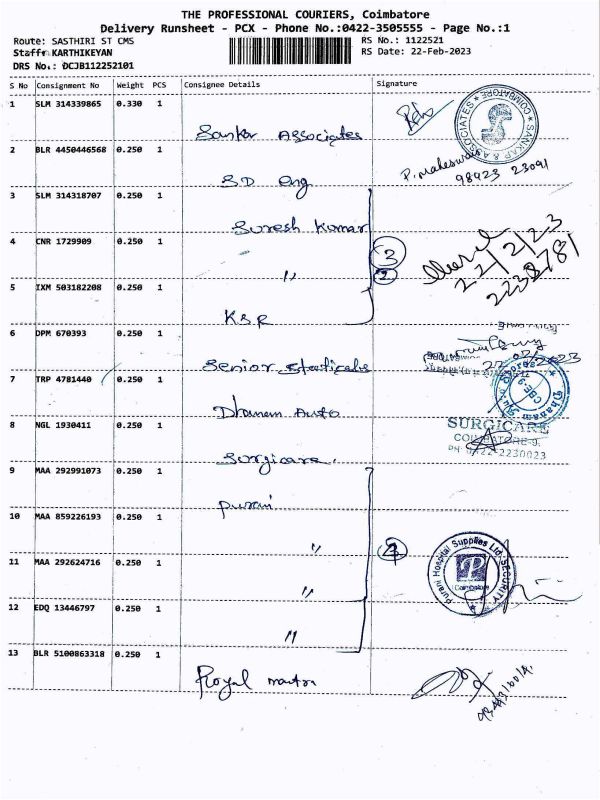 THE PROFESSIONAL COURIERS, Coimbatore
Delivery Runsheet - PCX - Phone No.:0422-3505555 - Page No.:1
Route: SASTHIRI ST CMS
RS No.: 1122521
Staff: KARTHIKEYAN
RS Date: 22-Feb-2023
DRS No.: DCJB112252101
S No Consignment No Weight PCS Consignee Details Signature
1 SLM 314339865 0.330 1
Sankar Associates
SANKAR & ASSOCIATES * COIMBATORE *
2 BLR 4450446568 0.250 1
P. maheswari
98423 23091
SD Eng
3 SLM 314318707 0.250 1
Suresh Kumar
22/2/23
2238781
4 CNR 1729909 0.250 1
"
3
2
5 IXM 503182208 0.250 1
KSR
6 DPM 670393 0.250 1
Senior
22/02/2023
7 TRP 4781440 0.250 1
Dhanam Auto
8 NGL 1930411 0.250 1
SURGICARE
COIMBATORE-9.
PH: 0422-2230023
Surgicare
9 MAA 292991073 0.250 1
Purani
10 MAA 859226193 0.250 1
"
4
11 MAA 292624716 0.250 1
"
Purani Hospital Supplies Ltd. SECURITY
P
Coimbatore
12 EDQ 13446797 0.250 1
"
13 BLR 5100863318 0.250 1
Royal